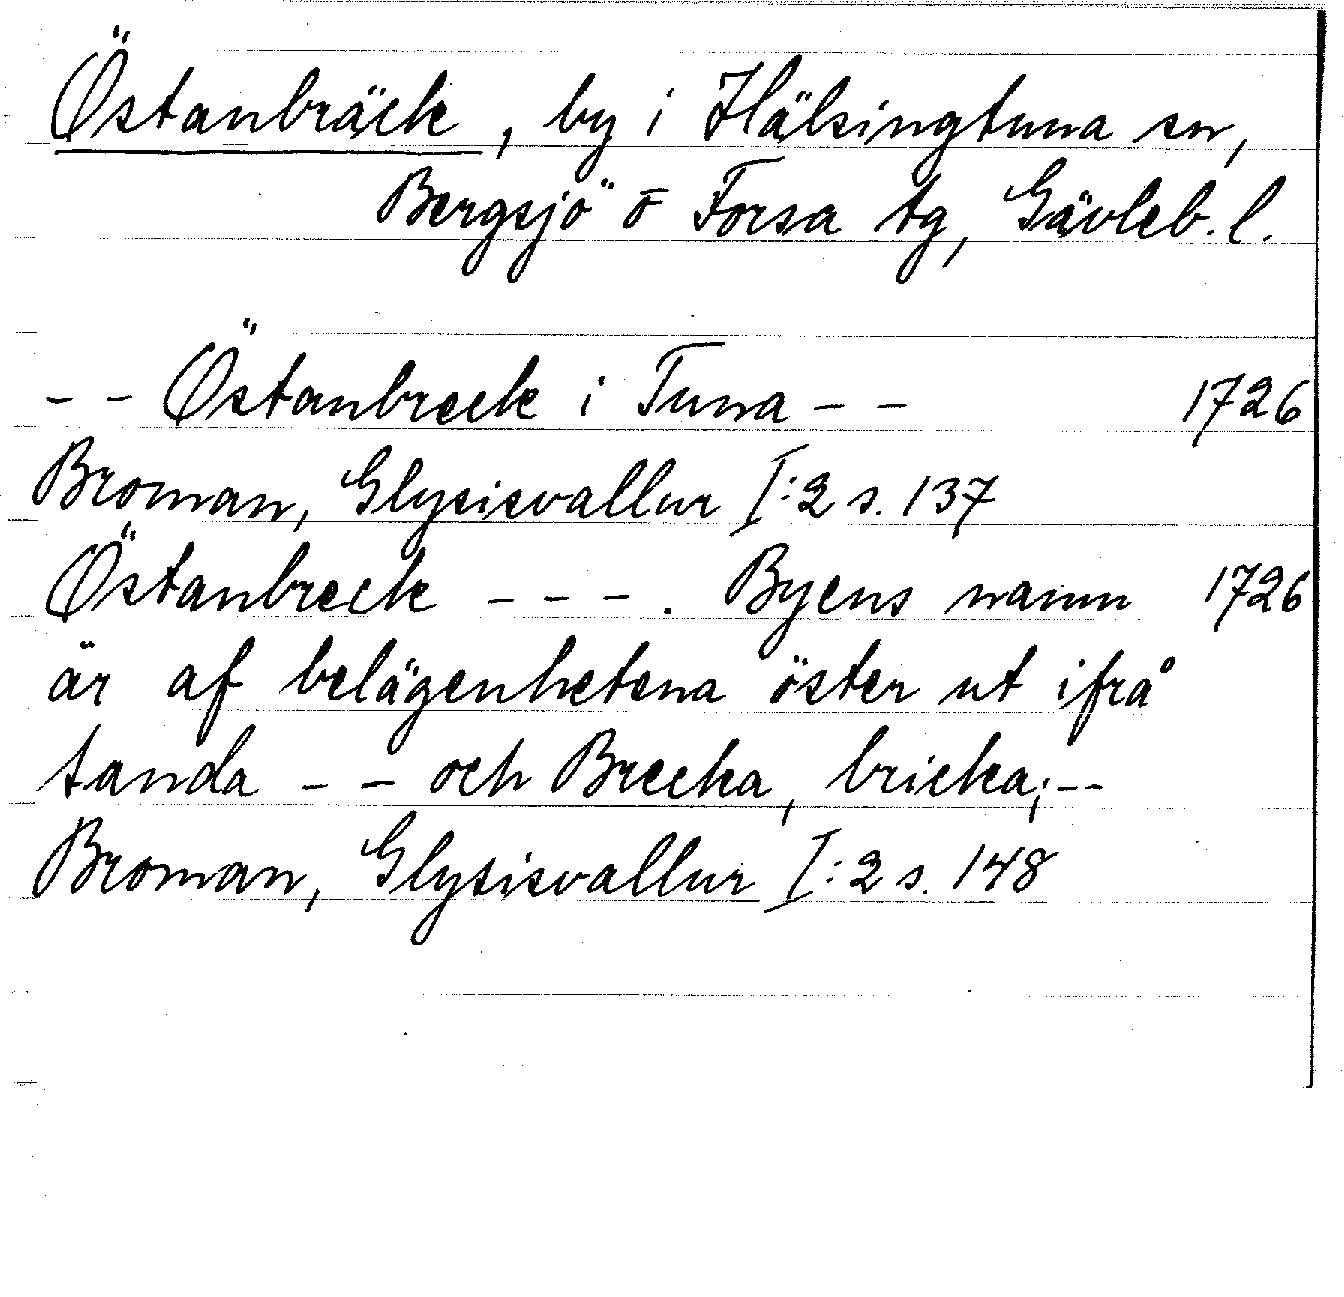 Östanbräck, by i Hälsingtuna sn,
Bergsjö o Forsa tg, Gävleb. l.
- - Östanbreck i Tuna - - 1726
Broman, Glysisvallur I:2 s. 137
Östanbreck - - - . Byens namn 1726
är af belägenhetena öster ut ifrå
tanda - - och Brecka, bricka; - -
Broman, Glysisvallur I:2 s. 148